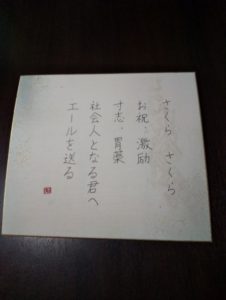 さくら さくら
お祝、激励
寸志、胃薬
社会人となる君へ
エールを送る